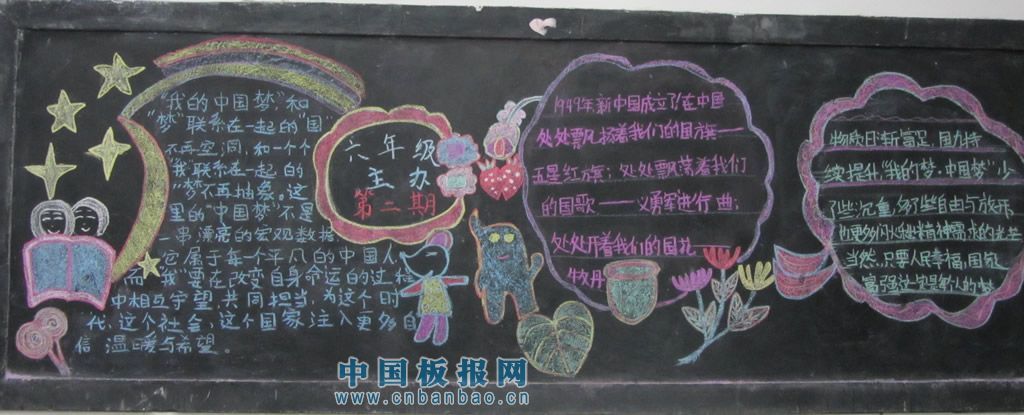 "我的中国梦"和
"梦"联系在一起的"国"
不再空洞,和一个个
"我"联系在一起的
"梦"不再抽象。这
里的"中国梦"不是
一串漂亮的宏观数据,
它属于每一个平凡的中国人
而"我"要在改变自身命运的过程
中相互守望,共同担当,为这个时
代,这个社会,这个国家注入更多自
信、温暖与希望。
六年级
主办
第二期
1949年新中国成立了!在中国
处处飘扬着我们的国旗——
五星红旗;处处飘荡着我们
的国歌——义勇军进行曲;
处处开着我们的国花
牡丹
物质日渐富足,国力持
续提升"我的梦·中国梦"少
了些沉重,多了些自由与放飞
也更多闪烁出精神需求的光芒
当然,只要人民幸福,国家
富强这一定是所有人的梦
中国板报网
www.cnbanbao.cn